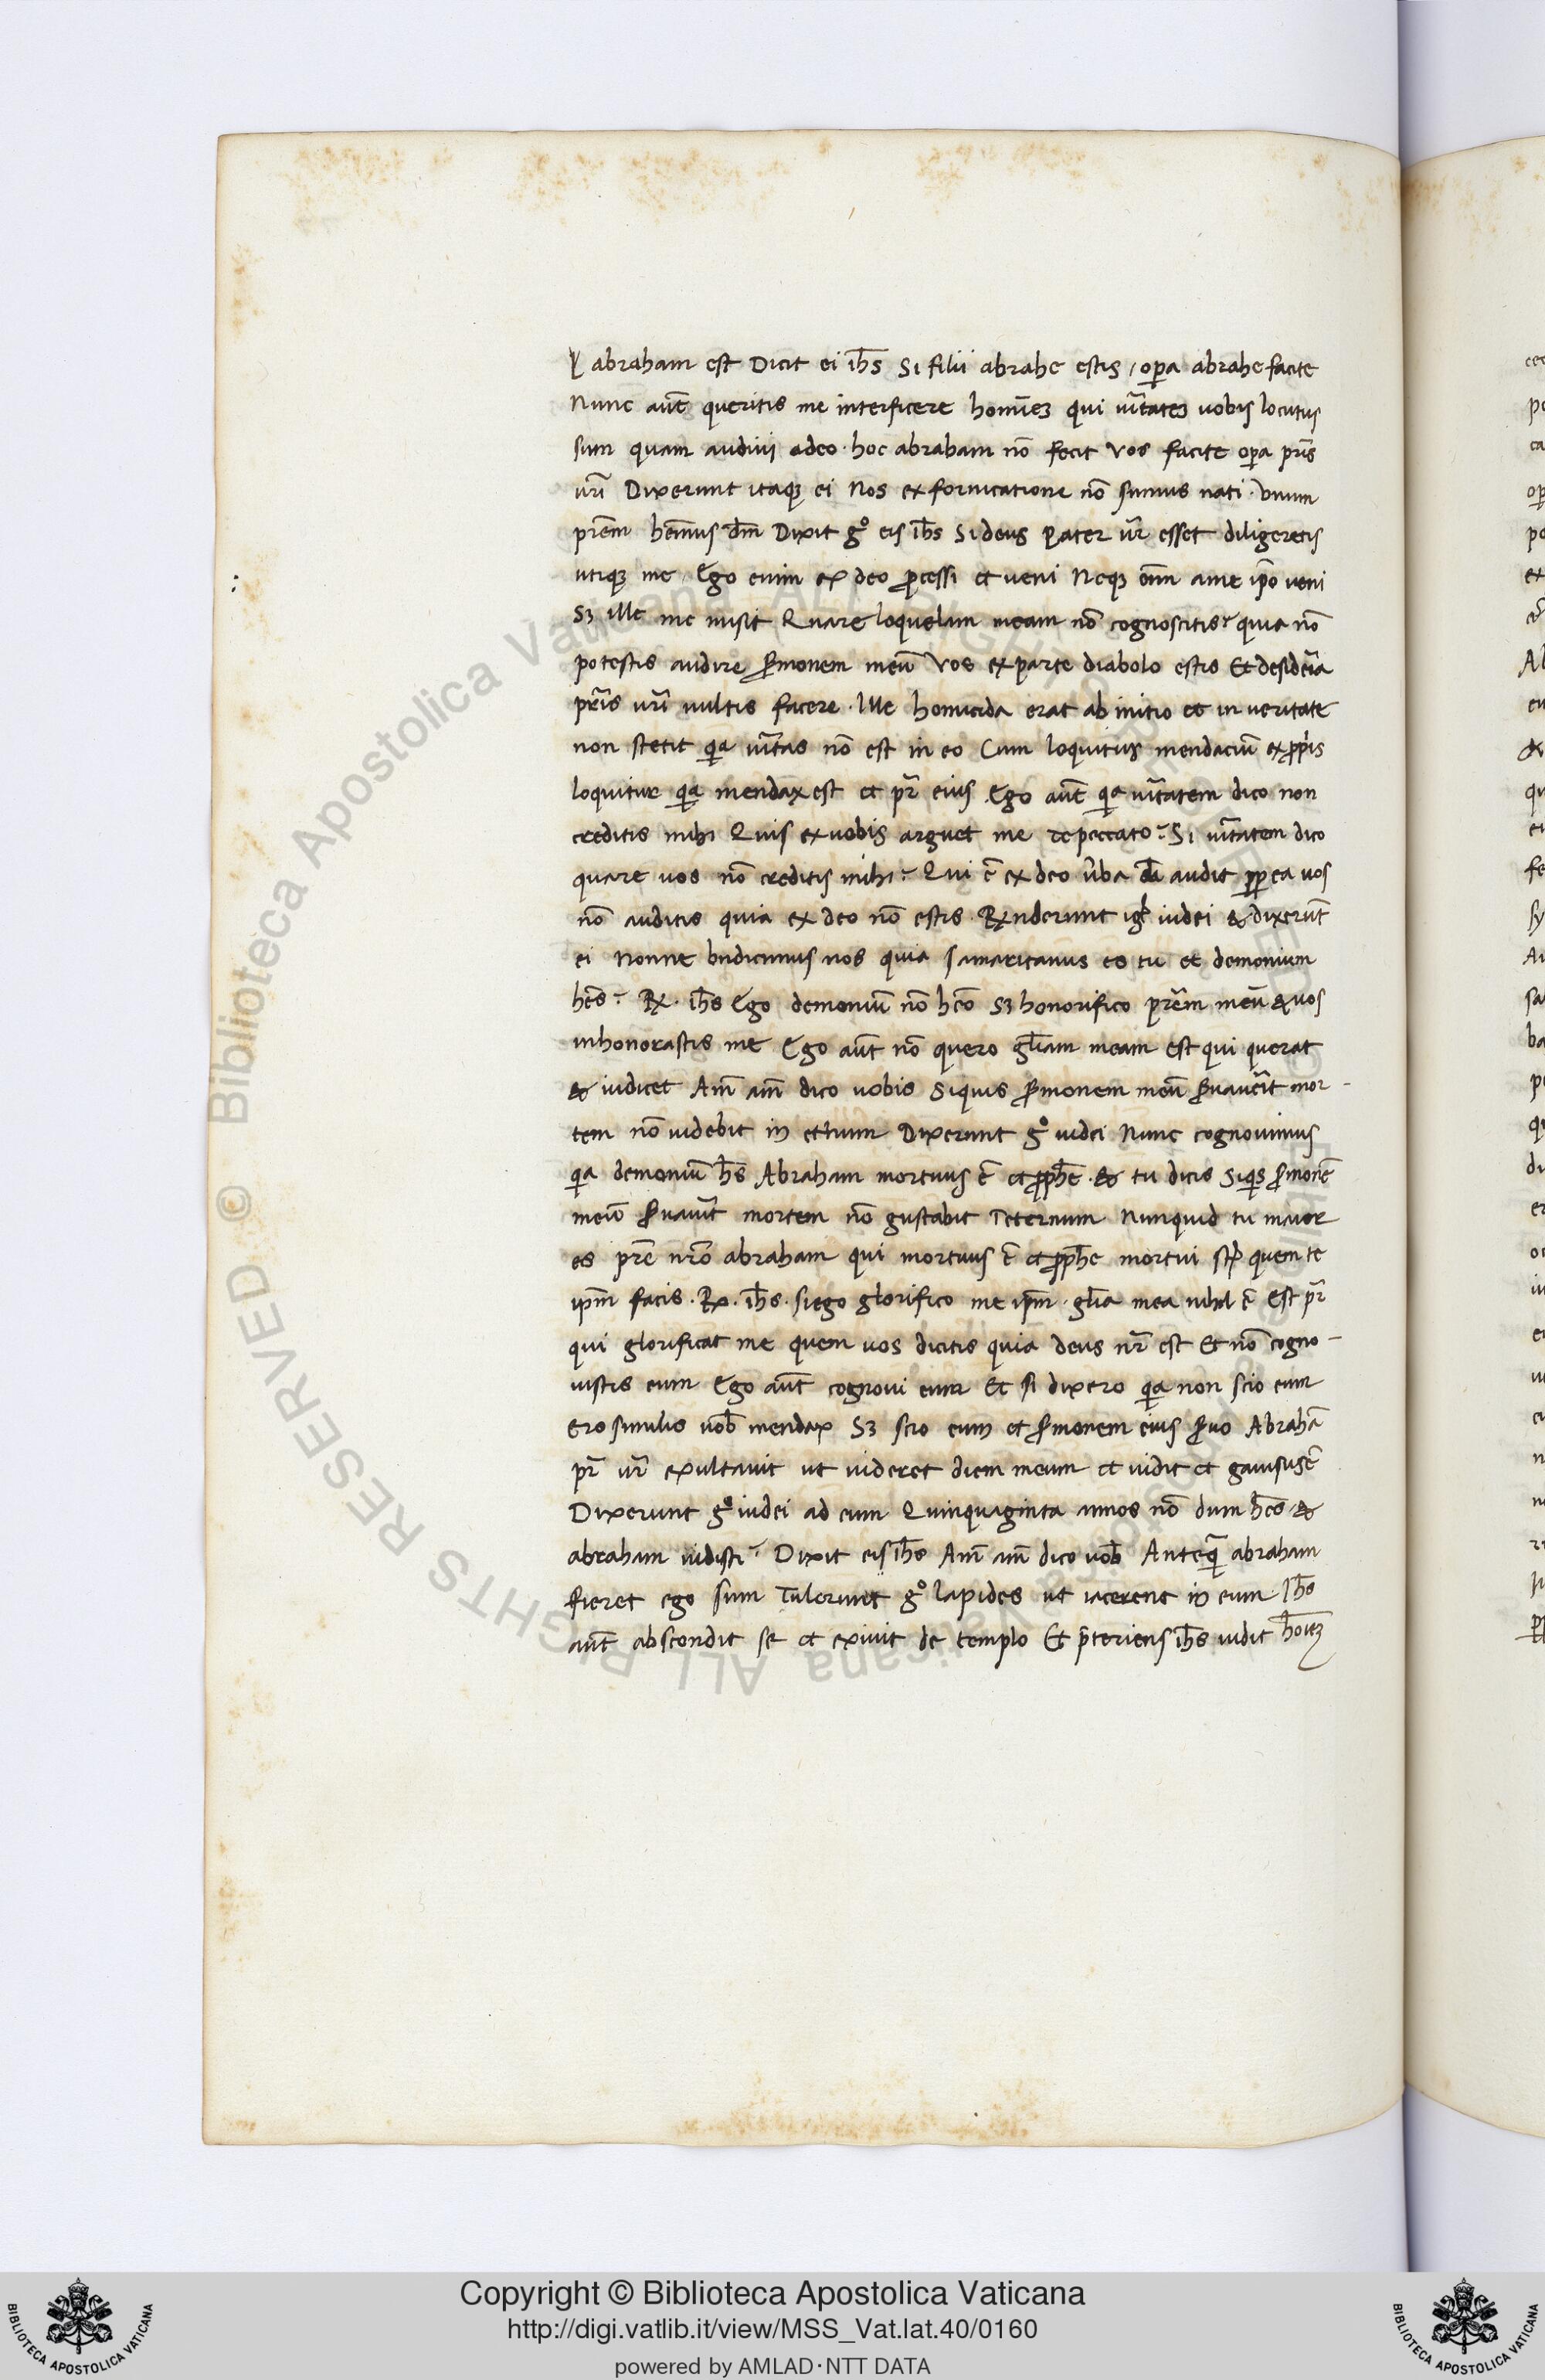 abraham est Dicit ei ih̅s Si filii abrahe estis / op̅a abrahe facite
Nunc aut̅ queritis me interficere homi̅eʒ qui u̅itateʒ uobis locutus
sum quam audiui adeo · hoc abraham no̅ fecit Vos facite op̅a pr̅is
ur̅i Dixerunt itaqꝫ ei Nos ex fornicatione no̅ sumus nati · Vnum
pr̅em hem̅us dm̅ Dixit g° eis ih̅s Si deus pater ur̅ esset diligeretis
utiqꝫ me · Ego enim ex deo ꝓcessi et ueni Neqꝫ em̅ ame ip̅o ueni
Sꝫ ille me misit Quare loquelam meam no̅ cognoscitis? quia no̅
potestis audire s̅monem meu̅ Vos ex parte diabolo estis Et desid̅ia
pr̅is ur̅i uultis facere · Ille homicida erat ab initio et in ueritate
non stetit q̅a u̅itas no̅ est in eo Cum loquitur mendaciu̅ ex ꝓp̅is
loquitur q̅a mendax est et pr̅ eius Ego aut̅ q̅a u̅itatem dico non
creditis mihi Quis ex uobis arguet me de peccato? Si u̅itatem dico
quare uos no̅ creditis mihi? Qui e̅ ex deo u̅ba di̅ audit ꝓp ea uos
no̅ auditis quia ex deo no̅ estis · R̷nderunt igr̅ iudei & dixeru̅t
ei Nonne bn̅dicimus nos quia samaritanus es tu et demonium
hes̅? R̷ · ih̅s Ego demoniu̅ no̅ heo̅ Sꝫ honorifico pr̅em meu̅ & uos
inhonorastis me Ego aut̅ no̅ quero gl̅iam meam est qui querat
& iudicet Am̅ am̅ dico uobis Siquis s̅monem meu̅ s̅uau̅it mor-
tem no̅ uidebit in et̅num Dixerunt g° iudei Nunc cognouimus
q̅a demoniu̅ he̅s Abraham mortuus e̅ et ꝓphe̅ · & tu dicis Siqis s̅mone̅
meu̅ s̅uau̅it mortem no̅ gustabit Ieternum Nunquid tu maior
es pr̅e nr̅o abraham qui mortuus e̅ et ꝓphe̅ mortui st̅ quem te
ipm̅ facis · R̷ · ih̅s · si ego glorifico me ipm̅ · gl̅ia mea nihil e̅ Est pr̅
qui glorificat me quem uos dicitis quia deus nr̅ est Et no̅ cogno-
uistis eum Ego aut̅ cognoui eum Et si dixero q̅a non scio eum
ero similis uob̅ mendax Sꝫ scio eum et s̅monem eius s̅uo Abraha̅
pr̅ ur̅ exultauit ut uideret diem meum et uidit et gauisus e̅
Dixerunt g° iudei ad eum Quinquaginta annos no̅ dum hes̅ · &
abraham uidisti? Dixit eis ih̅s Am̅ am̅ dico uob̅ Anteq̅ abraham
fieret ego sum Tulerunt g° lapides ut iacerent in eum · Ih̅s
aut̅ abscondit se et exiuit de templo Et p̅teriens ih̅s uidit ho̅ieʒ
© Biblioteca Apostolica Vaticana ALL RIGHTS RESERVED
Copyright © Biblioteca Apostolica Vaticana
http://digi.vatlib.it/view/MSS_Vat.lat.40/0160
powered by AMLAD·NTT DATA
BIBLIOTECA APOSTOLICA VATICANA
BIBLIOTECA APOSTOLICA VATICANA